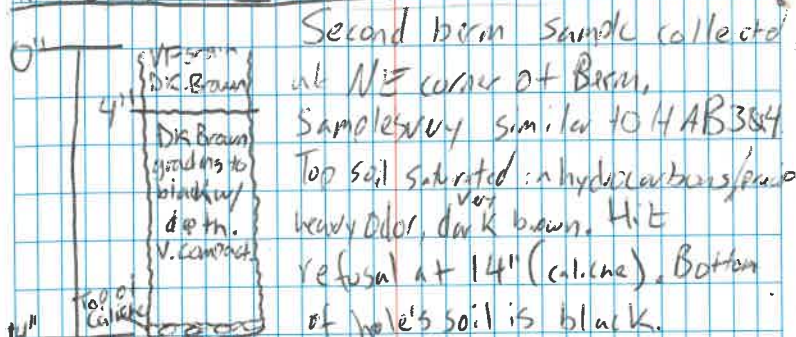 0"
VF grain
Dk. Brown
4"
Dk Brown
grading to
black w/
depth.
V. compact.
Top of
Caliche
14"
Second berm sample collected
at NE corner of Berm.
Samples very similar to HAB3&4
Top soil saturated in hydrocarbons/
very
heavy odor, dark brown. Hit
refusal at 14" (caliche). Bottom
of hole's soil is black.